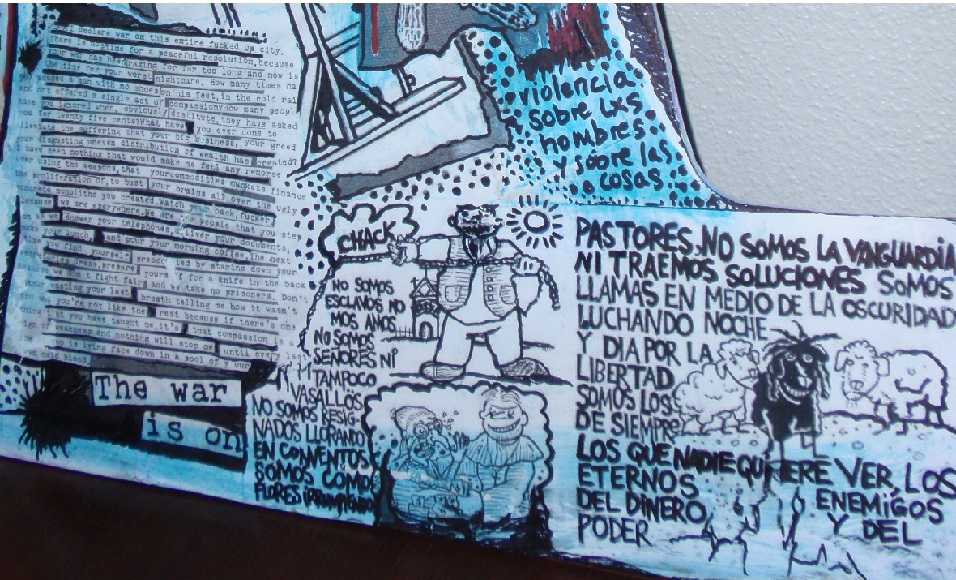 declare war on this entire fucked up city.
There is no time for a peaceful resolution, because
your war has been raging for far too long and now is
the time for your worst nightmare. How many times
passed a man with no shoes on his feet, in the cold rai
and not offered a single act of compassion? how many peopl
you ignored when, obviously destitute, they have asked
you for twenty five cents? what have you ever done to
the suffering that your business, your greed
your disgusting uneven distribution of wealth has created?
have seen nothing that would make me feel any remorse
using the weapons, that your commodities markets finance
proliferation of, to bust your brains all over the ugly
monoliths you created. watch your back, fucker
we are everywhere. we are the people that you step
answer your telephones, deliver your documents,
your lunch and pour your morning coffee. The next
you find yourself by staring down your
prepare yourself for a knife in the back
We don't fight fair and we take no prisoners. Don't
wasting your last breath telling me how it wasn't
you're not like the rest because if there's one
that you have taught us, it's that compassion
weakness and nothing will stop us until every last
is lying face down in a pool of your
cold blood.
The war
is on
violencia
sobre lxs
hombres
y sobre las
cosas.
CHACK
NO SOMOS
ESCLAVOS NO
MOS AMOS
NO SOMOS
SEÑORES NI
TAMPOCO
VASALLOS
NO SOMOS RESIG-
NADOS LLORANDO
EN CONVENTOS
SOMOS COMO
FLORES
PASTORES, NO SOMOS LA VANGUARDIA
NI TRAEMOS SOLUCIONES SOMOS
LLAMAS EN MEDIO DE LA OSCURIDAD
LUCHANDO NOCHE
Y DIA POR LA
LIBERTAD
SOMOS LOS
DE SIEMPRE
LOS QUE NADIE QUIERE VER, LOS
ETERNOS ENEMIGOS
DEL DINERO Y DEL
PODER